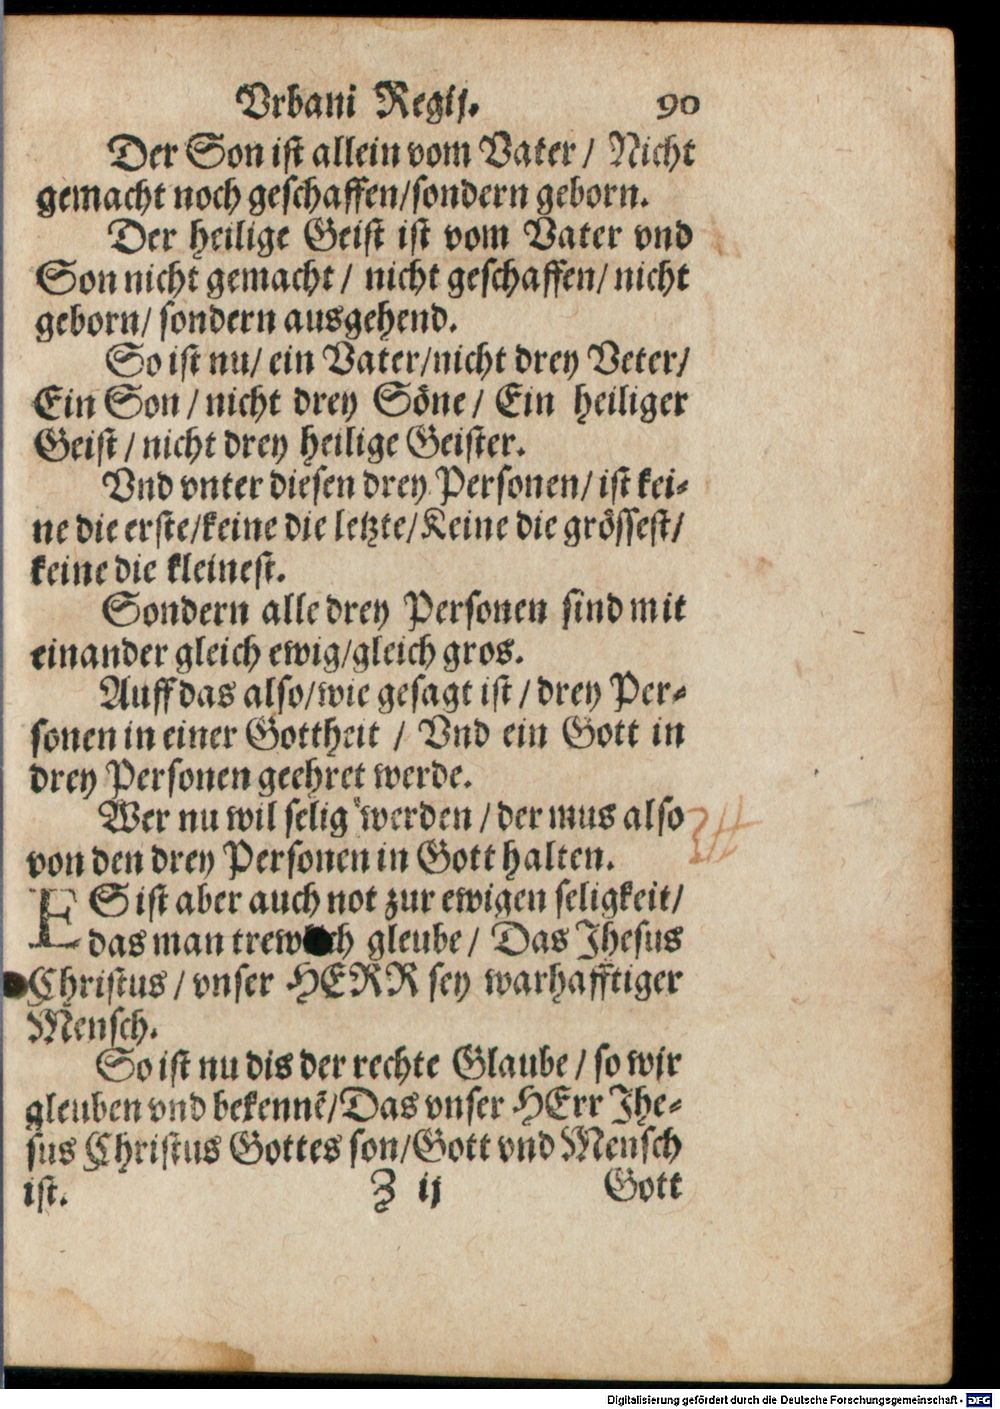 Vrbani Regij. 90
Der Son ist allein vom Vater / Nicht
gemacht noch geschaffen/sondern geborn.
Der heilige Geist ist vom Vater vnd
Son nicht gemacht / nicht geschaffen/ nicht
geborn/ sondern ausgehend.
So ist nu/ ein Vater/nicht drey Veter/
Ein Son / nicht drey Söne / Ein heiliger
Geist / nicht drey heilige Geister.
Vnd vnter diesen drey Personen/ ist kei-
ne die erste/keine die letzte/Keine die grössest/
keine die kleinest.
Sondern alle drey Personen sind mit
einander gleich ewig/gleich gros.
Auff das also/wie gesagt ist / drey Per-
sonen in einer Gottheit / Vnd ein Gott in
drey Personen geehret werde.
Wer nu wil selig werden / der mus also
von den drey Personen in Gott halten.
ES ist aber auch not zur ewigen seligkeit/
das man trewlich gleube / Das Jhesus
Christus / vnser HERR sey warhafftiger
Mensch.
So ist nu dis der rechte Glaube / so wir
gleuben vnd bekennē/Das vnser HErr Jhe-
sus Christus Gottes son/Gott vnd Mensch
ist. Z ij Gott
Digitalisierung gefördert durch die Deutsche Forschungsgemeinschaft - DFG